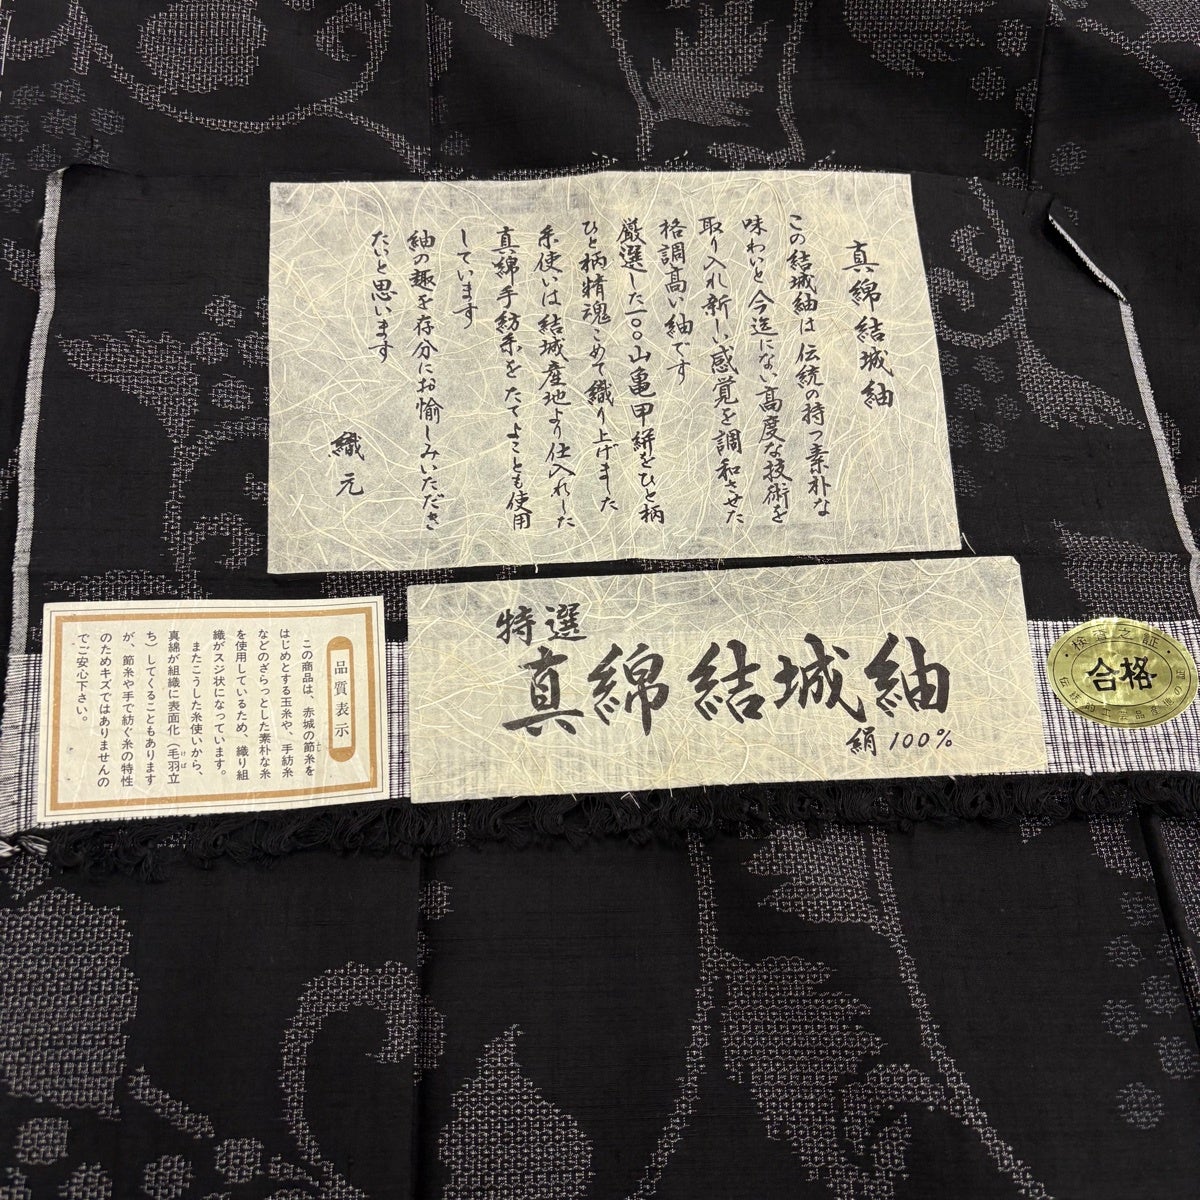 真綿結城紬
この結城紬は伝統の持つ素朴な
味わいと今迄にない高度な技術を
取り入れ新しい感覚を調和させた
格調高い紬です
厳選した一〇〇山亀甲絣をひと柄
ひと柄精魂こめて織り上げました
糸使いは結城産地より仕入れした
真綿手紡糸をたてよことも使用
しています
紬の趣を存分にお愉しみいただき
たいと思います
織元
特選
真綿結城紬
絹100%
品質表示
この商品は、赤城の節糸を
はじめとする玉糸や、手紡糸
などのざらっとした素朴な糸
を使用しているため、織り組
織がスジ状になっています。
またこうした糸使いから、
真綿が組織に表面化（毛羽立
ち）してくることもあります
が、節糸や手で紡ぐ糸の特性
のためキズではありませんの
でご安心下さい。
検査之証
合格